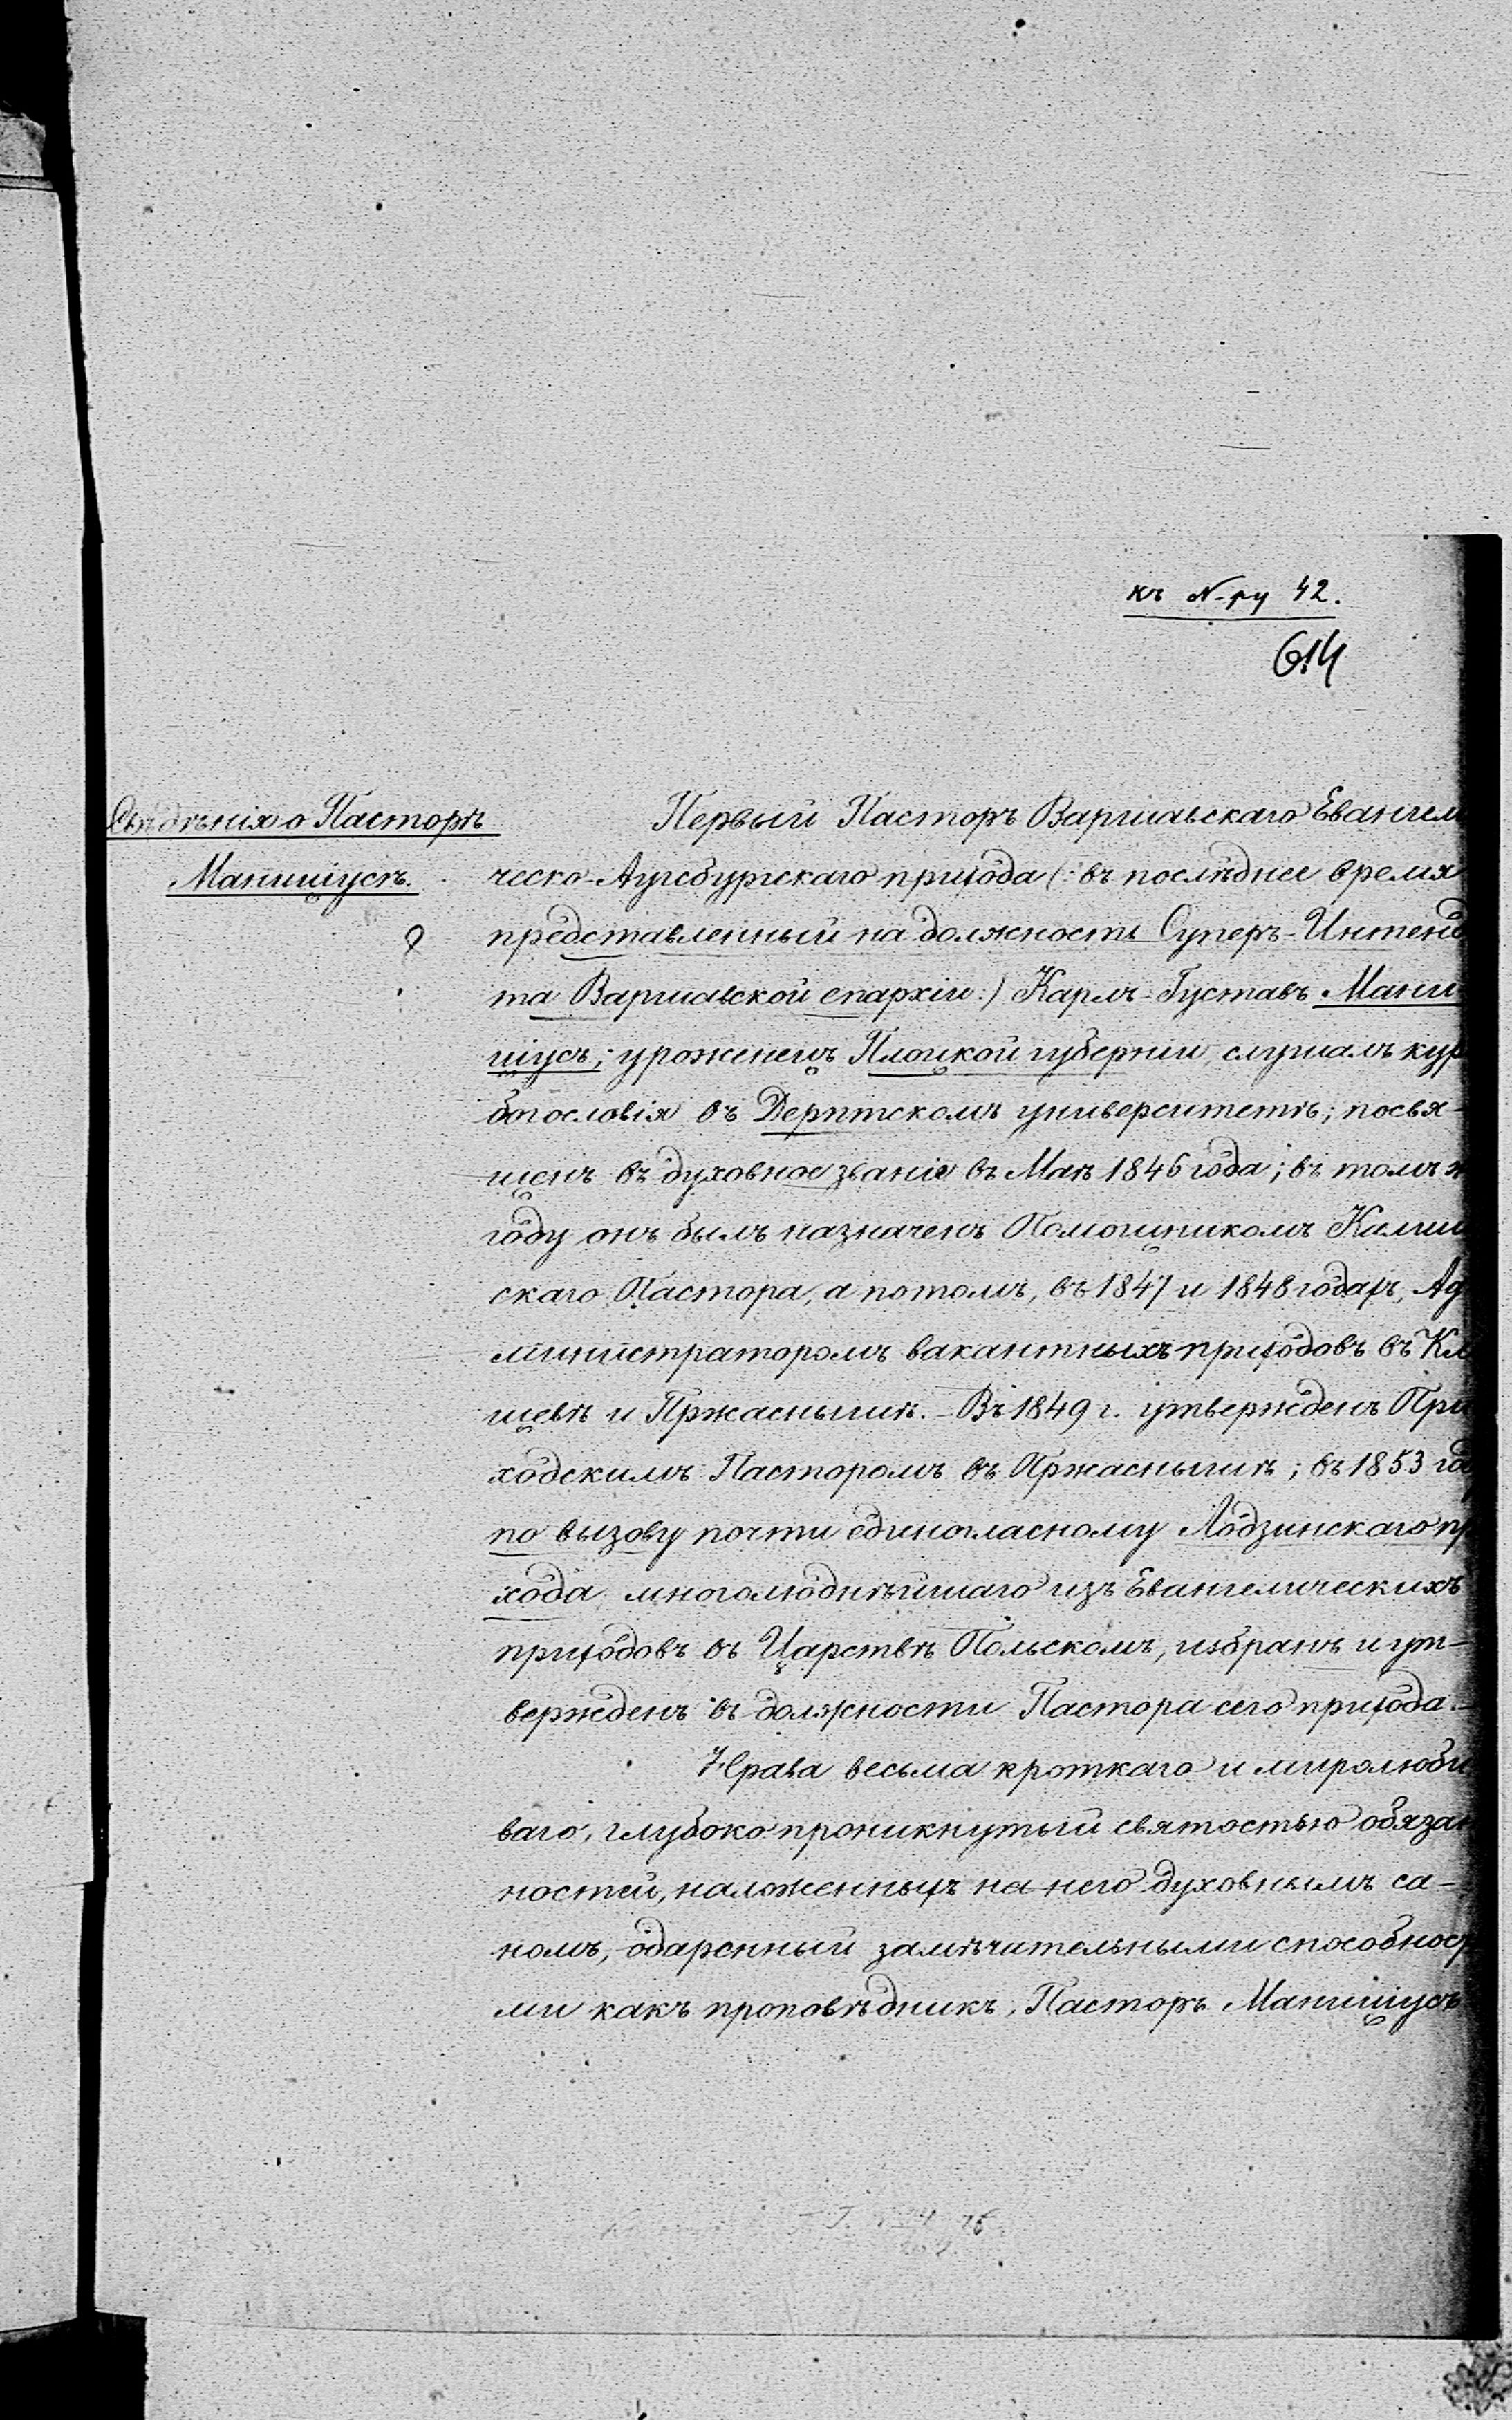 къ N-ру 42.
614
Свѣдѣнія о Пасторѣ
Маниціусѣ.
Первый Пасторъ Варшавскаго Евангели
ческо-Аугсбургскаго прихода (: въ послѣднее время
представленный на должность Суперъ-Интенд
та Варшавской епархіи:) Карлъ-Густавъ Мани
ціусъ; уроженецъ Плоцкой губерніи слушалъ кур
богословія въ Дерптскомъ университетѣ; посвя-
щенъ въ духовное званіе въ Маѣ 1846 года; въ томъ ж
году онъ былъ назначенъ Помощникомъ Калиш
скаго Пастора, а потомъ, въ 1847 и 1848 годахъ, Ад
министраторомъ вакантныхъ приходовъ въ Кл
щевѣ и Пржаснышѣ. - Въ 1849 г. утвержденъ При
ходскимъ Пасторомъ въ Пржаснышѣ; въ 1853 год
по вызову почти единогласному Лодзинскаго пр
хода, многолюднѣйшаго изъ Евангелическихъ
приходовъ въ Царствѣ Польскомъ, избранъ и ут-
вержденъ въ должности Пастора сего прихода.-
Нрава весьма кроткаго и миролюби
ваго, глубоко проникнутый святостью обязан
ностей, наложенныхъ на него духовнымъ са-
номъ, одаренный замѣчательными способност
ми какъ проповѣдникъ, Пасторъ Маниціусъ